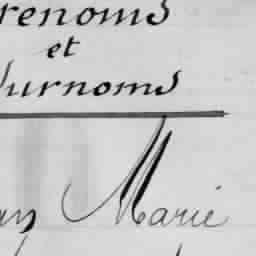 renoms
et
urnoms
Marie